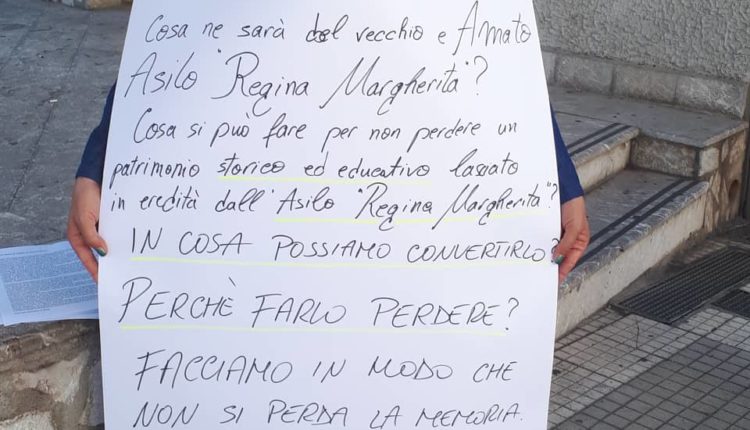 Cosa ne sarà del vecchio e Amato
Asilo "Regina Margherita"?
Cosa si può fare per non perdere un
patrimonio storico ed educativo lasciato
in eredità dall'Asilo "Regina Margherita"?
IN COSA POSSIAMO CONVERTIRLO?
PERCHÈ FARLO PERDERE?
FACCIAMO IN MODO CHE
NON SI PERDA LA MEMORIA.